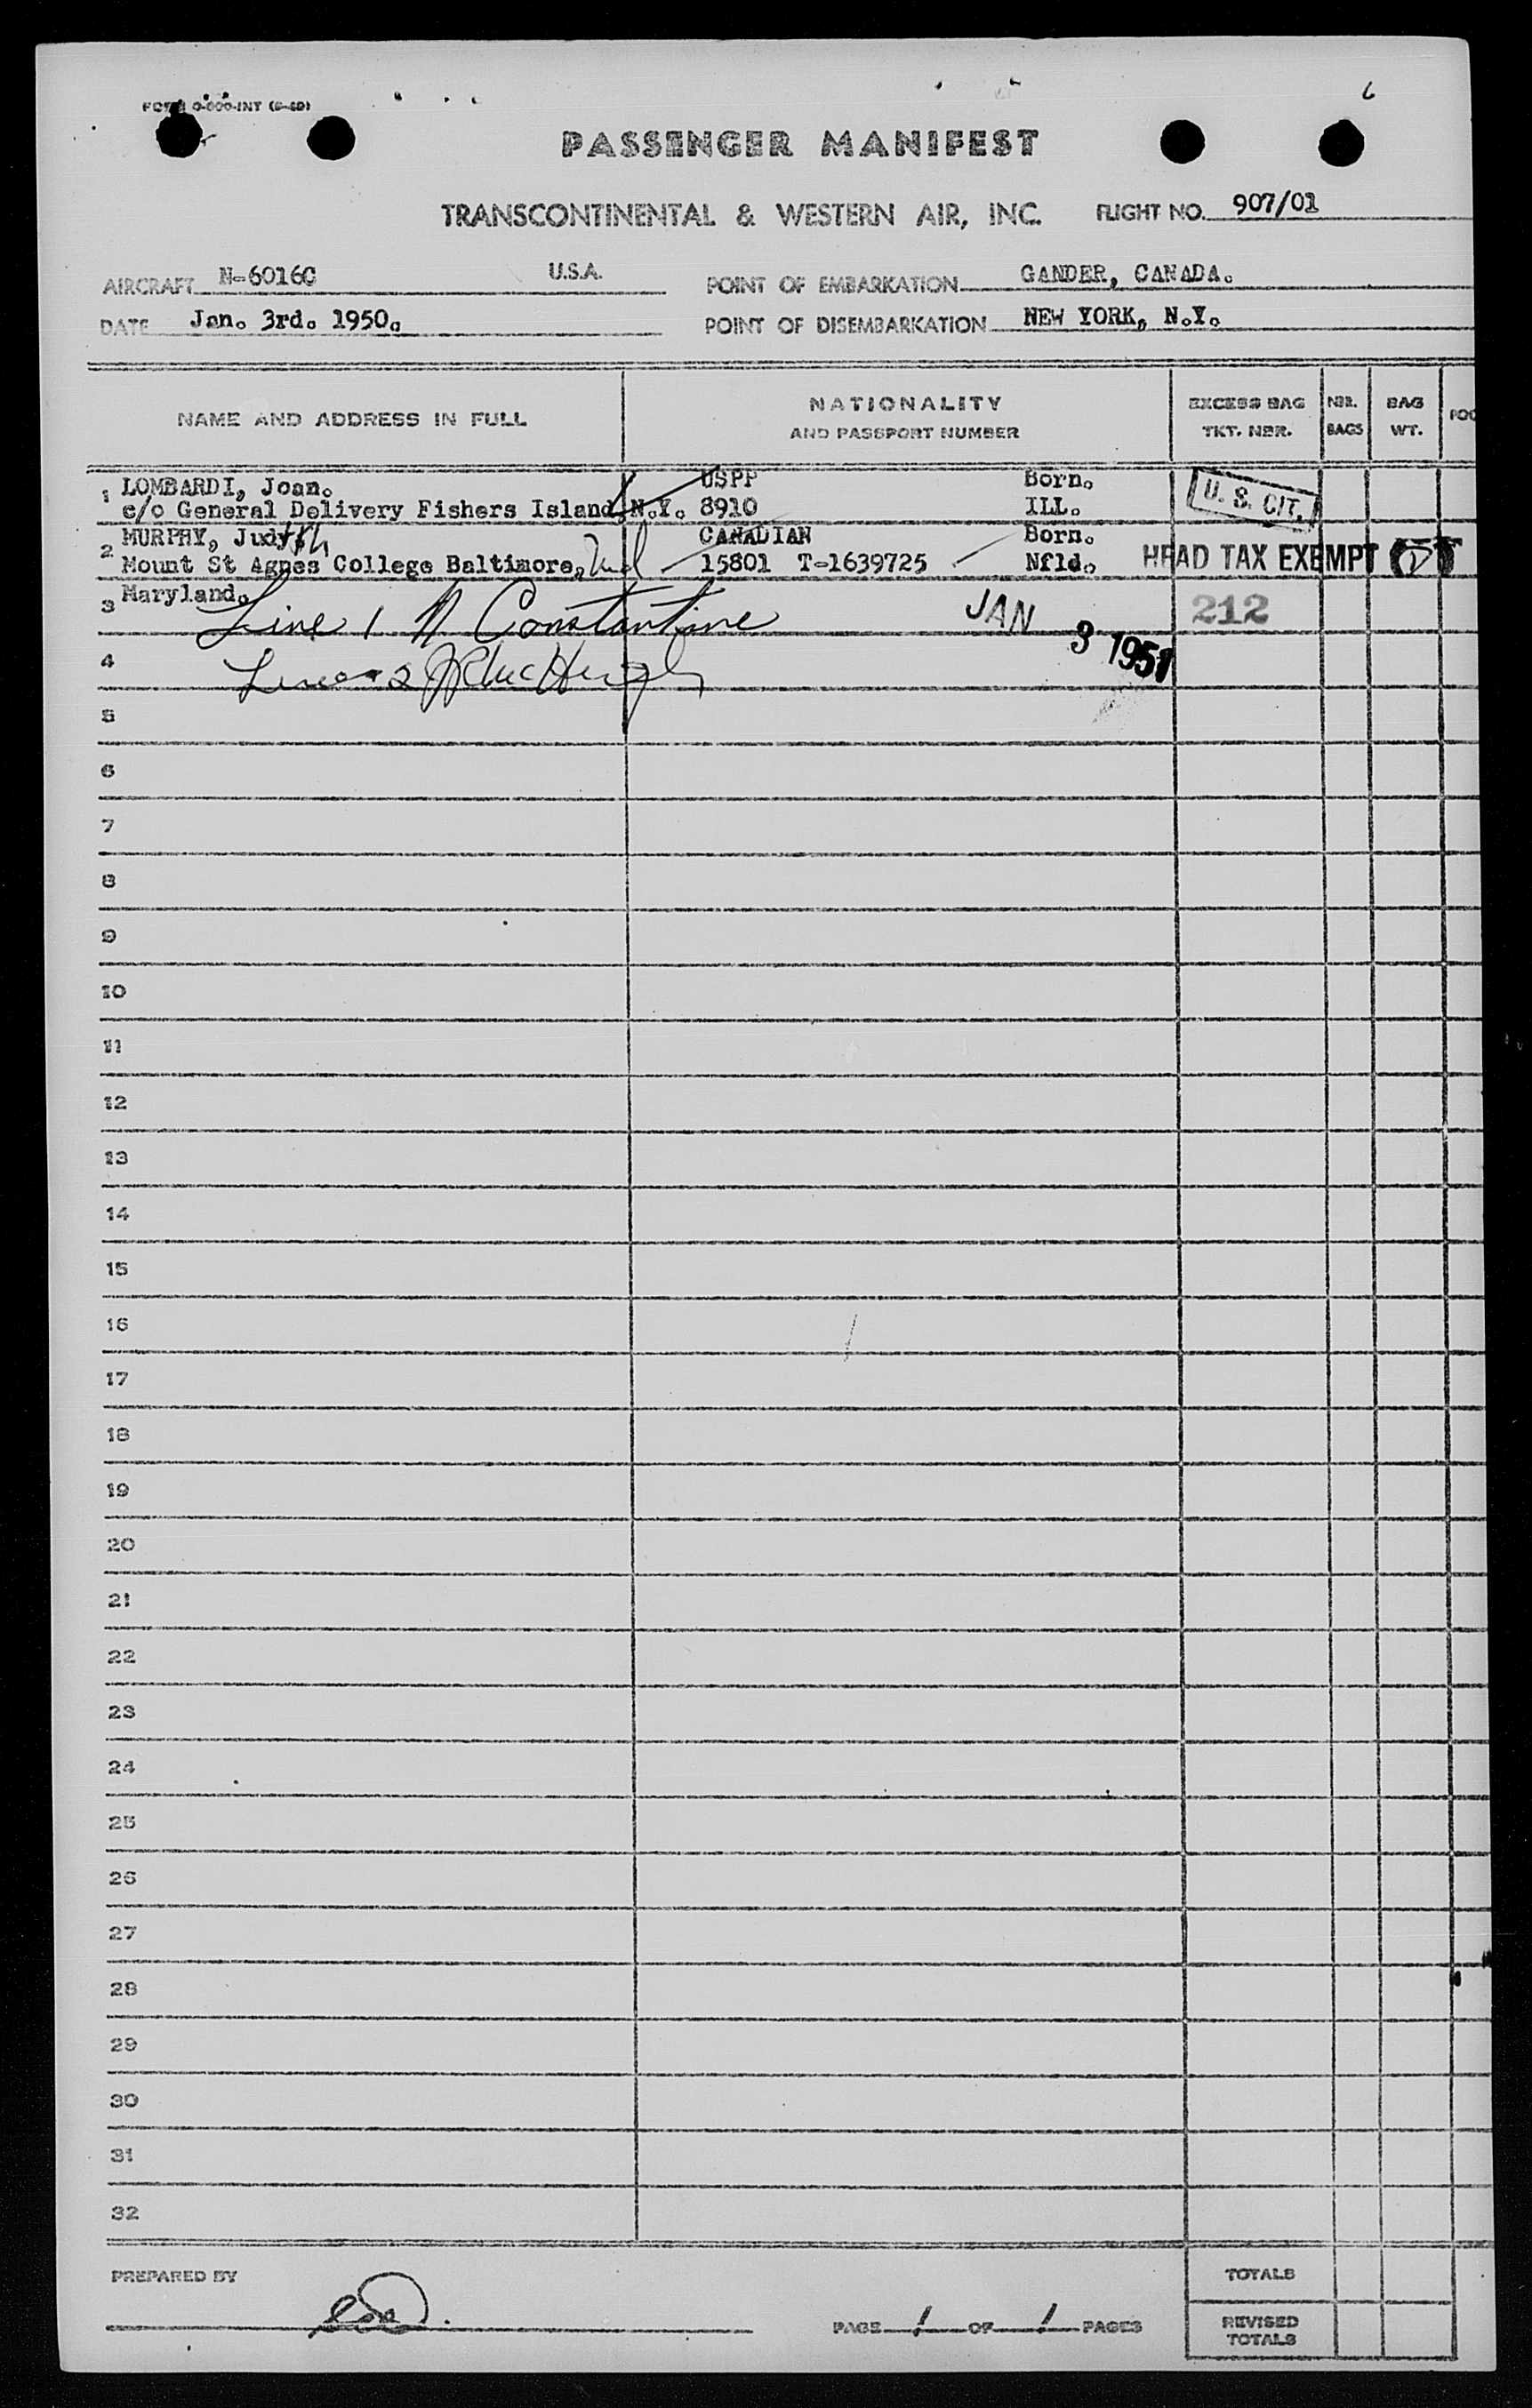 6
FORM O-000-INT (6-49)
PASSENGER MANIFEST
TRANSCONTINENTAL & WESTERN AIR, INC. FLIGHT NO. 907/01
AIRCRAFT N-6016C U.S.A. POINT OF EMBARKATION GANDER, CANADA.
DATE Jan. 3rd. 1950. POINT OF DISEMBARKATION NEW YORK, N.Y.
NAME AND ADDRESS IN FULL
NATIONALITY
AND PASSPORT NUMBER
EXCESS BAG
TKT. NBR.
NBR.
BAGS
BAG
WT.
1 LOMBARDI, Joan. USPP Born. U. S. CIT.
c/o General Delivery Fishers Island, N.Y. 8910 ILL.
2 MURPHY, Judith CANADIAN Born.
Mount St Agnes College Baltimore, Md 15801 T-1639725 Nfld. HEAD TAX EXEMPT
3 Maryland. Line 1 N Constantine JAN 3 1951 212
4 Line 2
5
6
7
8
9
10
11
12
13
14
15
16
17
18
19
20
21
22
23
24
25
26
27
28
29
30
31
32
PREPARED BY TOTALS
PAGE 1 OF 1 PAGES REVISED
TOTALS